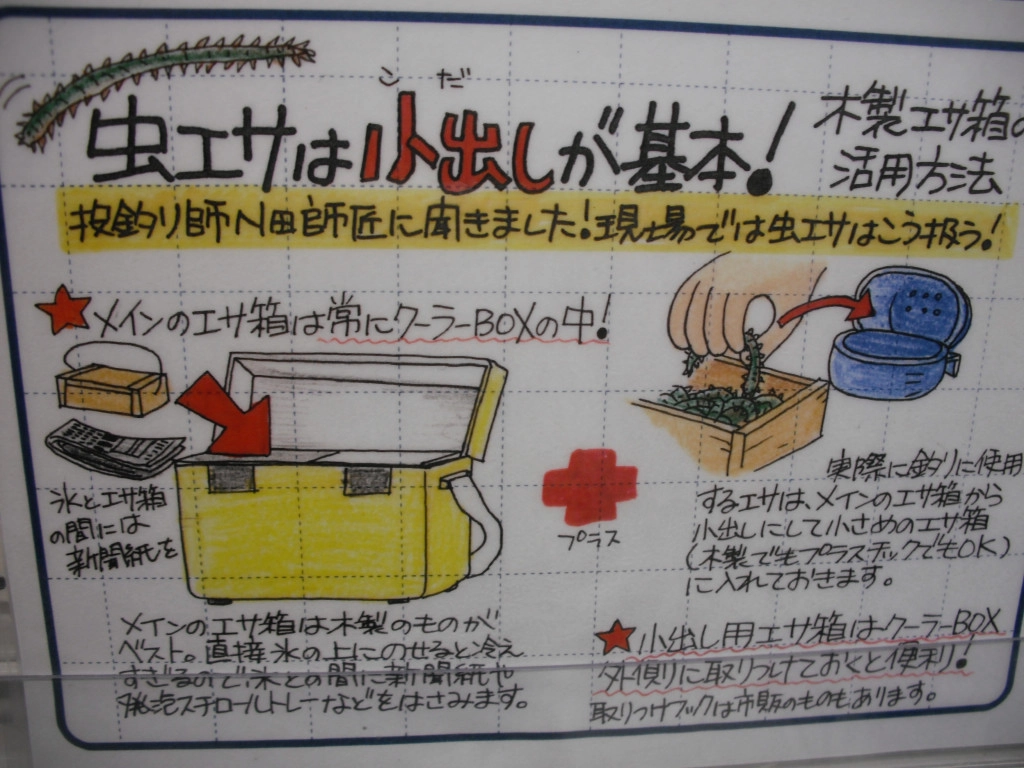 こ だ
虫エサは小出しが基本!
木製エサ箱の
活用方法
投釣り師N田師匠に聞きました!現場では虫エサはこう扱う!
メインのエサ箱は常にクーラーBOXの中!
氷とエサ箱
の間には
新聞紙を
プラス
実際に釣りに使用
するエサは、メインのエサ箱から
小出しにして小さめのエサ箱
(木製でもプラスチックでもOK)
に入れておきます。
メインのエサ箱は木製のものが
ベスト。直接氷の上にのせると冷え
すぎるので氷との間に新聞紙や
発泡スチロールトレーなどをはさみます。
小出し用エサ箱はクーラーBOX
外側に取りつけておくと便利!
取りつけフックは市販のものもあります。